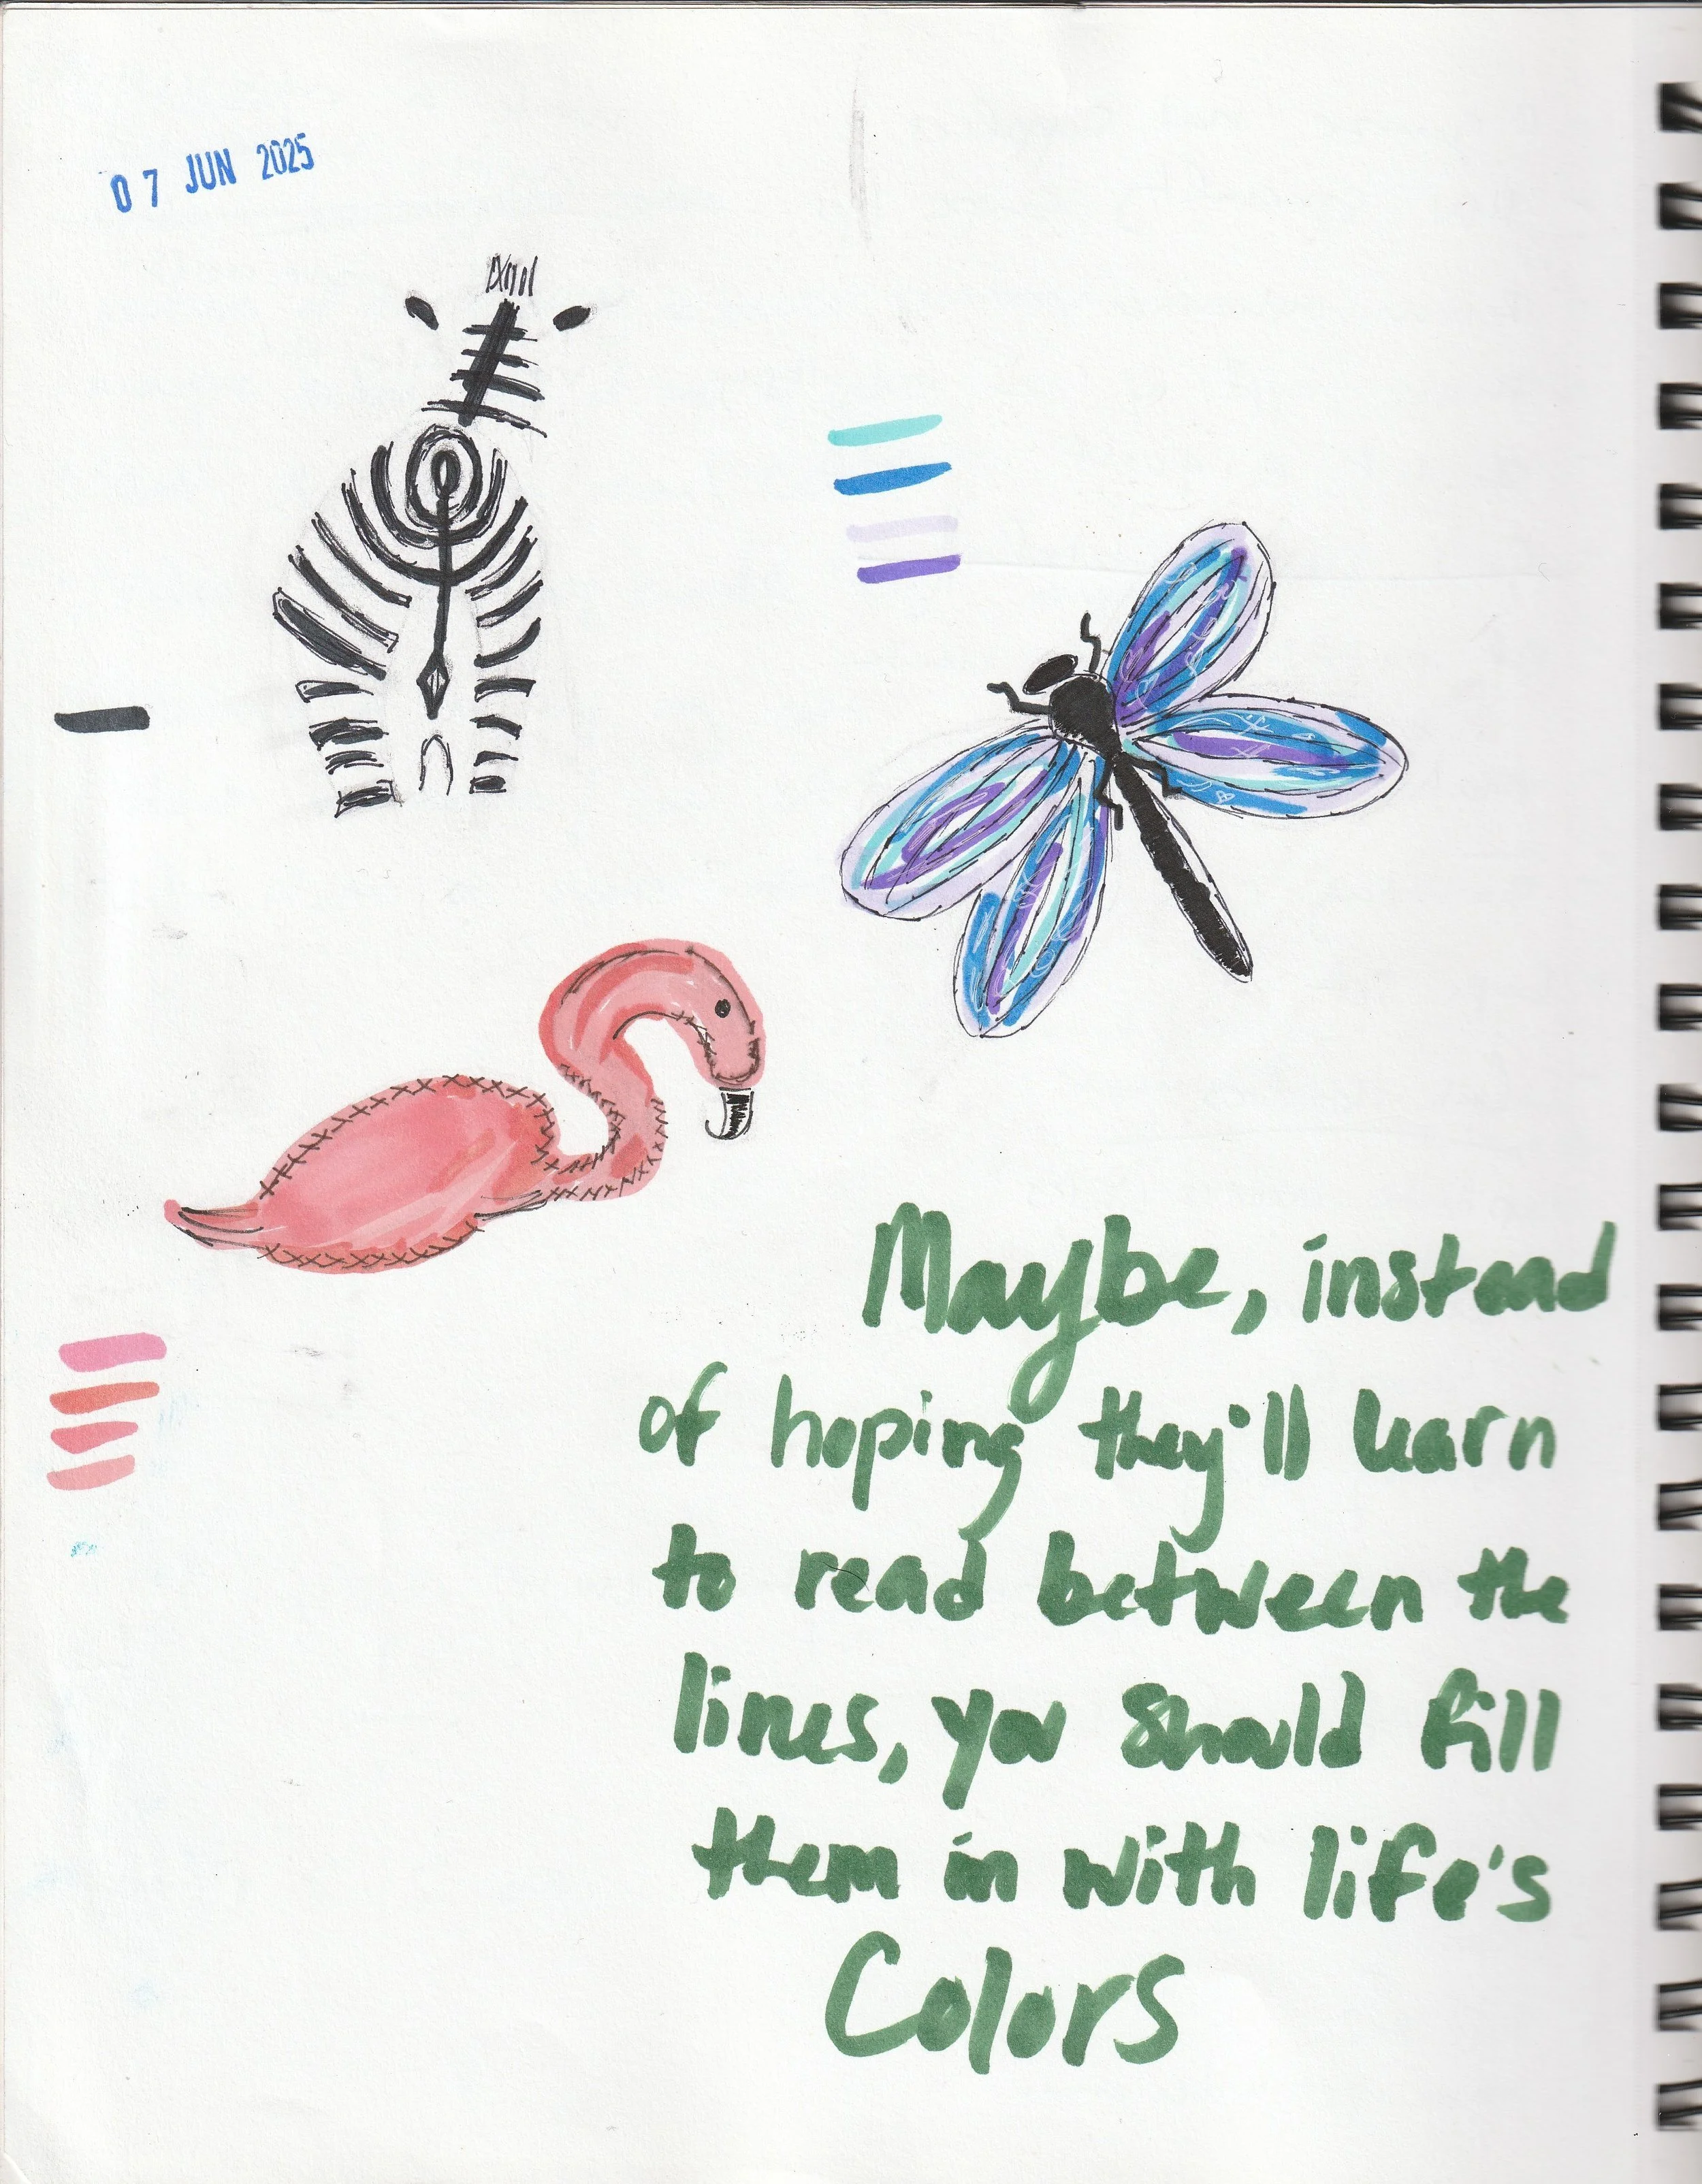 07 JUN 2025
Maybe, instead
of hoping they'll learn
to read between the
lines, you should fill
them in with life's
Colors